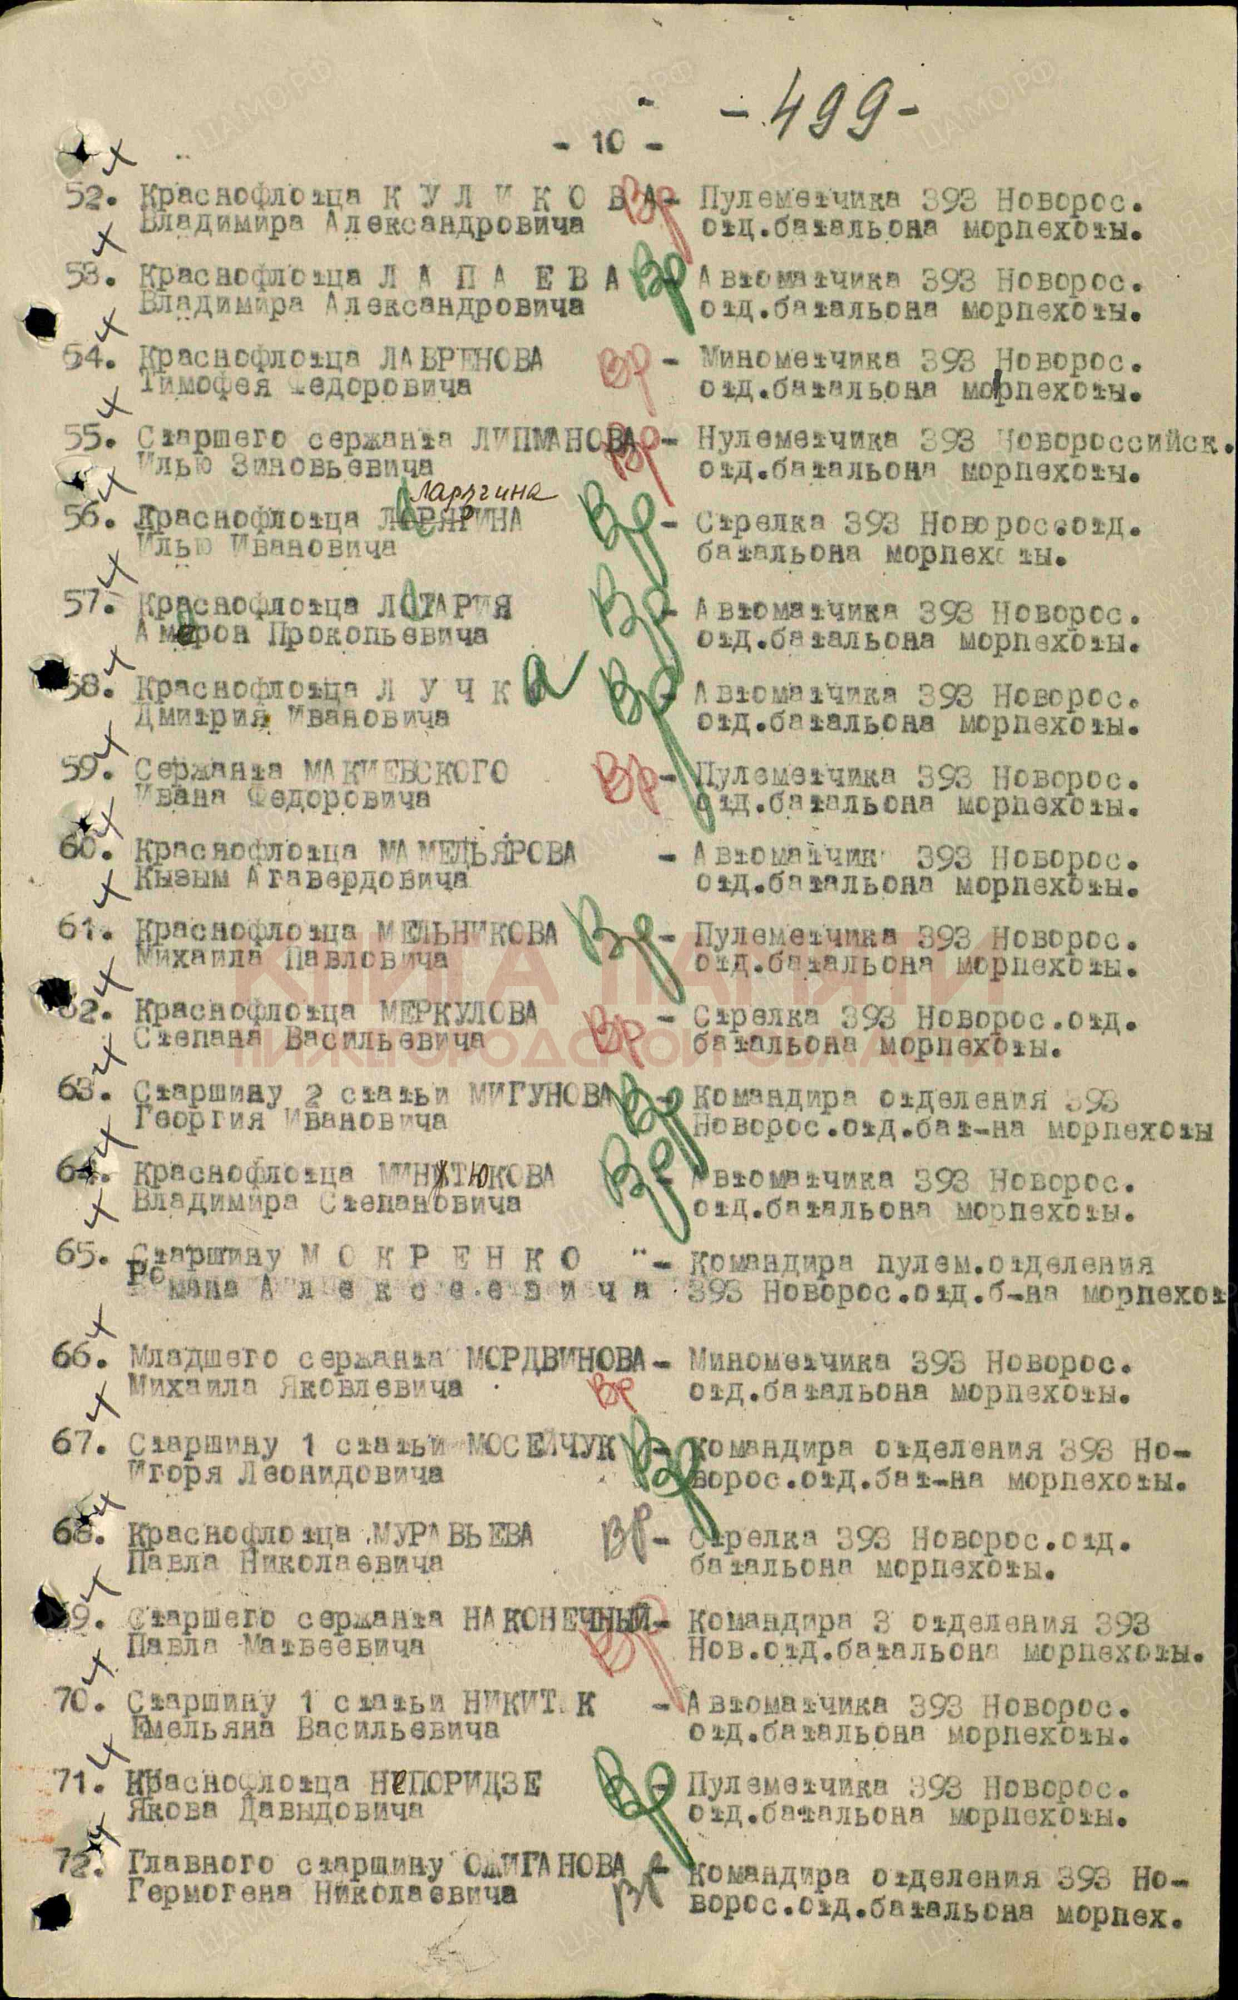 - 499 -
- 10 -
52. Краснофлотца К У Л И К О В А - Пулеметчика 393 Новорос.
Владимира Александровича отд.батальона морпехоты.
53. Краснофлотца Л А П А Е В А Вр Автоматчика 393 Новорос.
Владимира Александровича отд.батальона морпехоты.
54. Краснофлотца ЛАВРЕНОВА Вр - Минометчика 393 Новорос.
Тимофея Федоровича отд.батальона морпехоты.
55. Старшего сержанта ЛИПМАНОВА Вр - Нулеметчика 393 Новороссийск.
Илью Зиновьевича отд.батальона морпехоты.
Ларягина
56. Краснофлотца Вр - Стрелка 393 Новорос.отд.
Илью Ивановича батальона морпехоты.
57. Краснофлотца ЛОТАРИЯ Вр - Автоматчика 393 Новорос.
Прокопьевича отд.батальона морпехоты.
58. Краснофлотца Л У Ч К а Вр - Автоматчика 393 Новорос.
Дмитрия Ивановича отд.батальона морпехоты.
59. Сержанта МАКИЕВСКОГО Вр - Пулеметчика 393 Новорос.
Ивана Федоровича отд.батальона морпехоты.
60. Краснофлотца МАМЕДЬЯРОВА - Автоматчик 393 Новорос.
Кызым Агавердовича отд.батальона морпехоты.
61. Краснофлотца МЕЛЬНИКОВА Вр - Пулеметчика 393 Новорос.
Михаила Павловича отд.батальона морпехоты.
КНИГА ПАМЯТИ
62. Краснофлотца МЕРКУЛОВА Вр - Стрелка 393 Новорос.отд.
Степана Васильевича батальона морпехоты.
НИЖЕГОРОДСКОЙ ОБЛАСТИ
63. Старшину 2 статьи МИГУНОВА Вр - Командира отделения 393
Георгия Ивановича Новорос.отд.бат-на морпехоты
64. Краснофлотца МИНУТЮКОВА Вр - Автоматчика 393 Новорос.
Владимира Степановича отд.батальона морпехоты.
65. Старшину М О К Р Е Н К О - Командира пулем.отделения
Романа А л е к с е е в и ч а 393 Новорос.отд.б-на морпехот
66. Младшего сержанта МОРДВИНОВА - Минометчика 393 Новорос.
Михаила Яковлевича Вр отд.батальона морпехоты.
67. Старшину 1 статьи МОСЕЙЧУК Вр - Командира отделения 393 Но-
Игоря Леонидовича ворос.отд.бат-на морпехоты.
68. Краснофлотца МУРАВЬЕВА Вр - Стрелка 393 Новорос.отд.
Павла Николаевича батальона морпехоты.
69. Старшего сержанта НАКОНЕЧНЫЙ - Командира 3 отделения 393
Павла Матвеевича Вр Нов.отд.батальона морпехоты.
70. Старшину 1 статьи - Автоматчика 393 Новорос.
Емельяна Васильевича отд.батальона морпехоты.
71. Краснофлотца НеПОРИДЗЕ Вр - Пулеметчика 393 Новорос.
Якова Давыдовича отд.батальона морпехоты.
72. Главного старшину ОЖИГАНОВА - Командира отделения 393 Но-
Гермогена Николаевича Вр ворос.отд.батальона морпех.